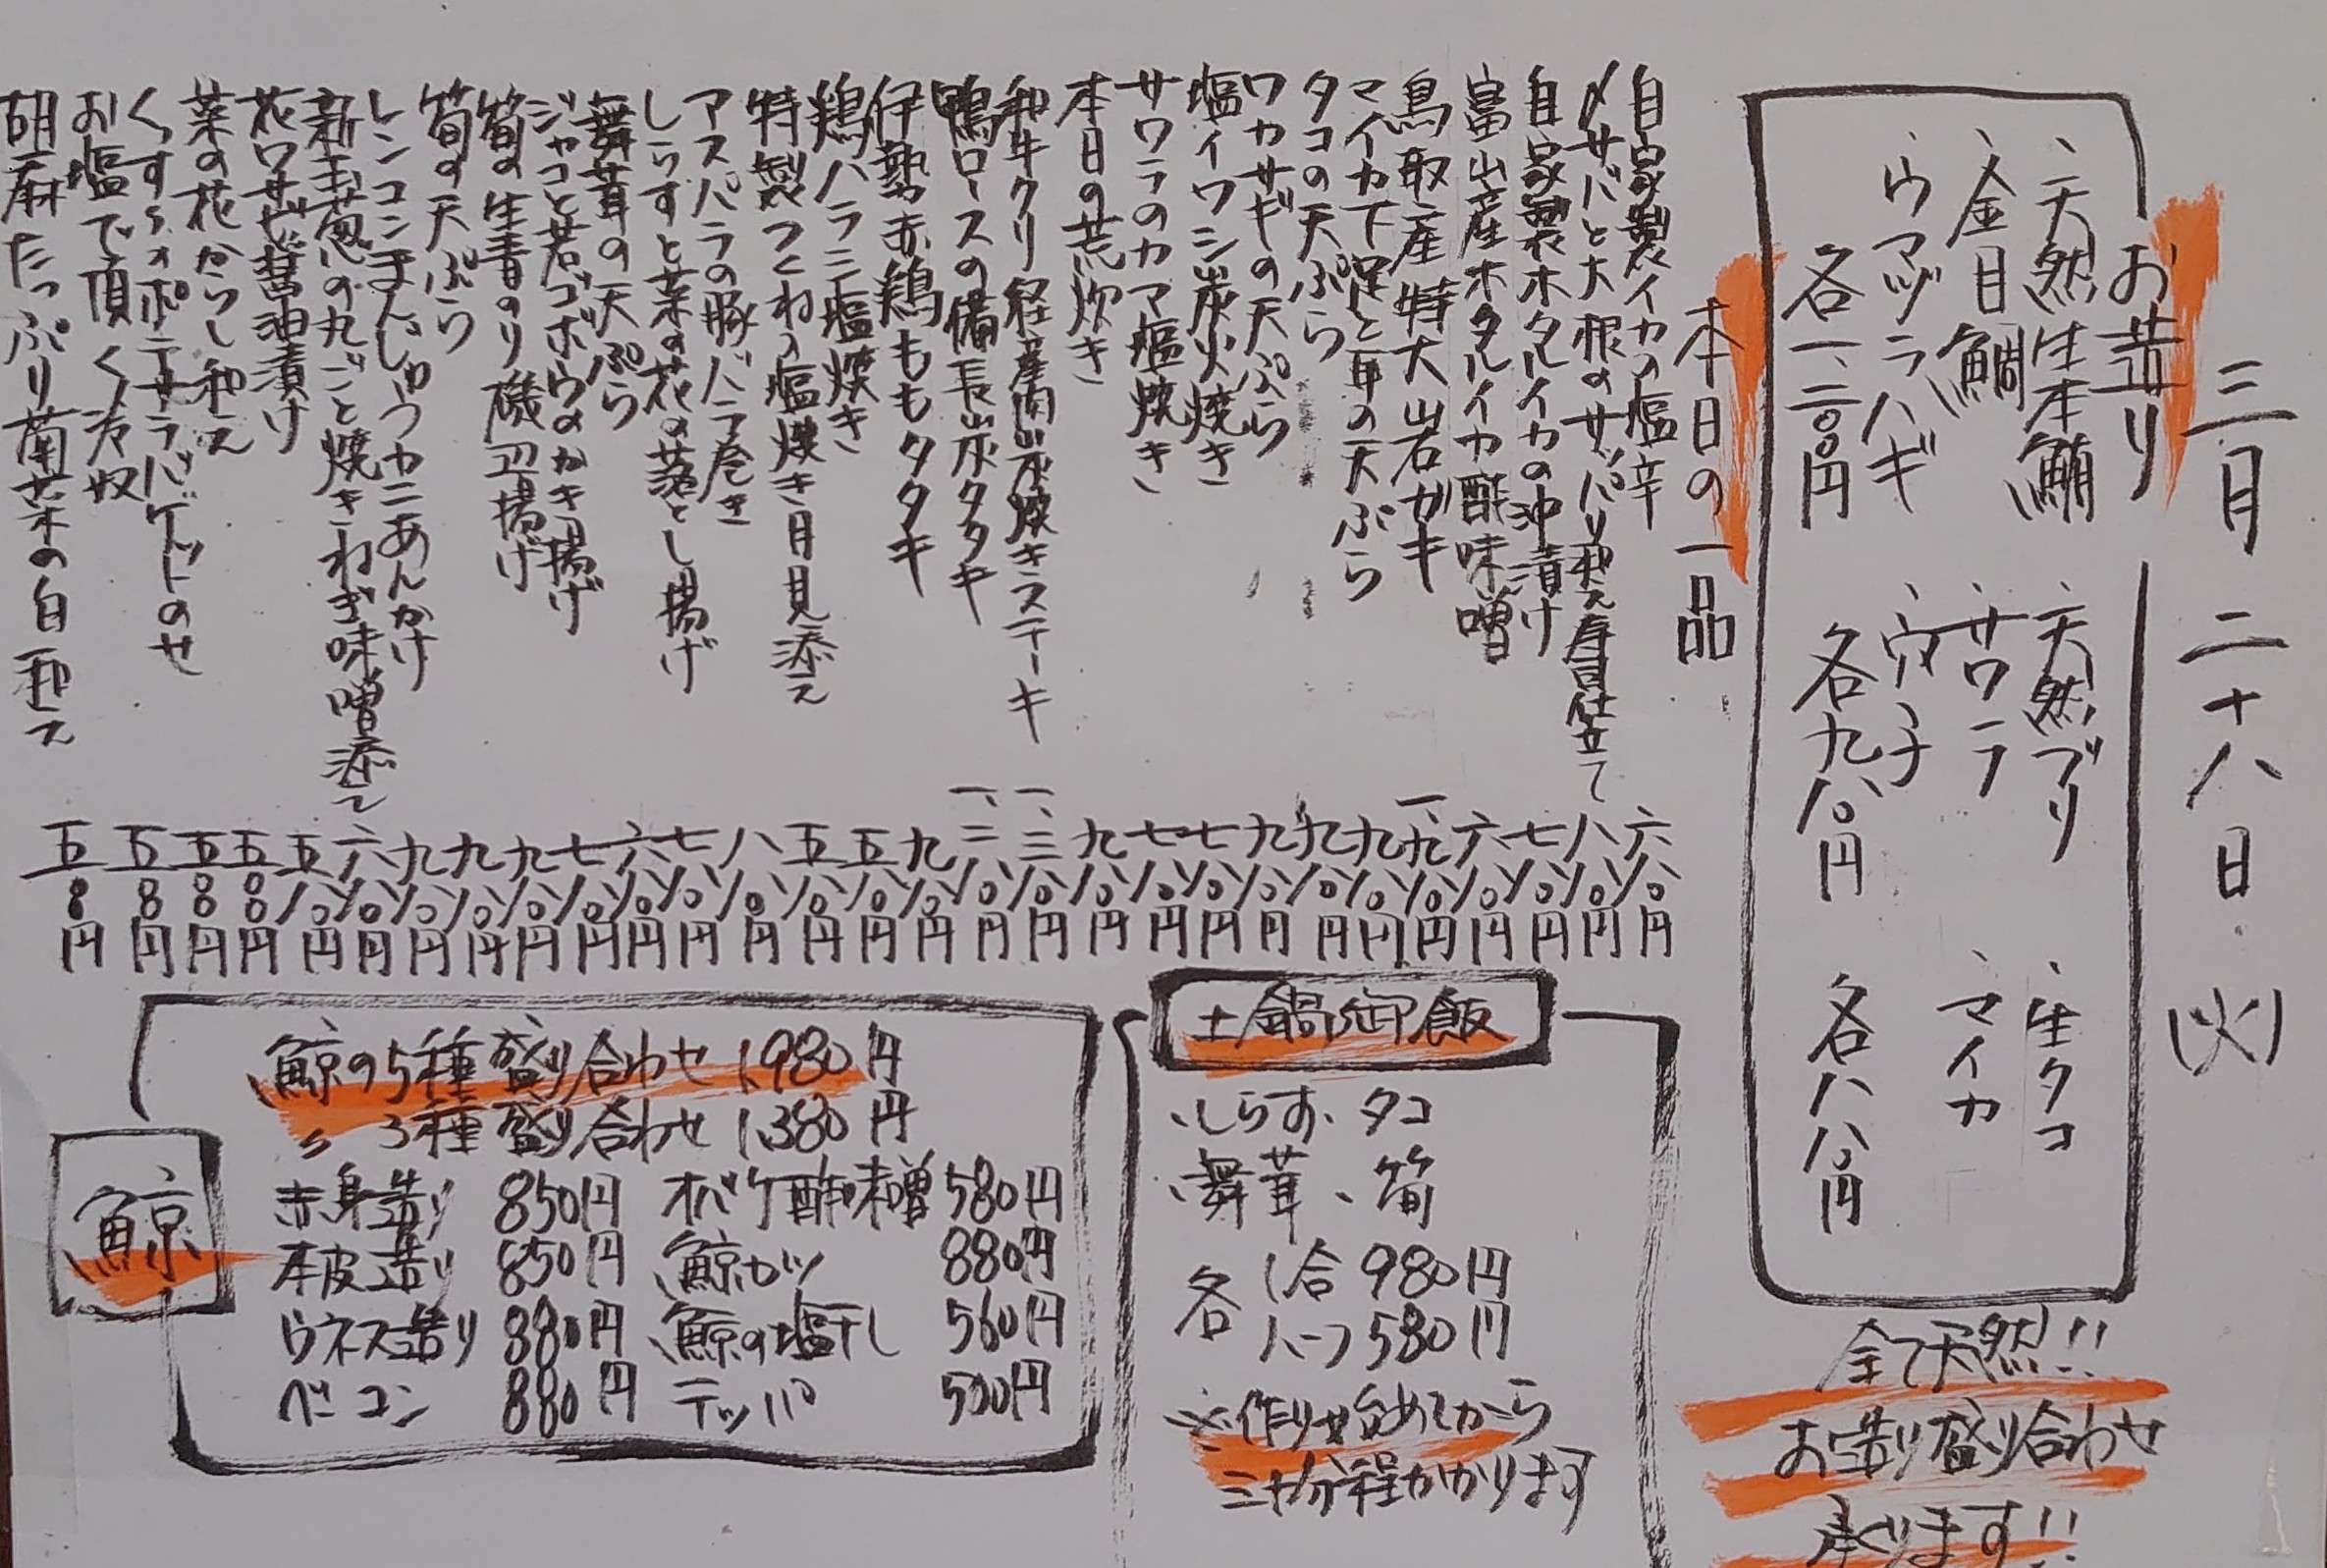 三月二十八日(火)
お造り
、天然生本鮪
、金目鯛
、ウマヅラハギ
各一、二〇〇円
、天然ブリ
、サワラ
、穴子
各九八〇円
、生タコ
、マイカ
各八八〇円
全て天然!!
お造り盛り合わせ
承ります!!
本日の一品
自家製イカの塩辛 六八〇円
〆サバと大根のサッパリ和え寿司仕立て 八八〇円
自家製ホタルイカの沖漬け 七八〇円
富山産ホタルイカ酢味噌 六八〇円
鳥取産特大岩ガキ 一、九八〇円
マイカ下足と耳の天ぷら 九八〇円
タコの天ぷら 九八〇円
ワカサギの天ぷら 九八〇円
塩イワシ炭火焼き 七八〇円
サワラのカマ塩焼き 七八〇円
本日の荒炊き 九八〇円
和牛クリ経産肉炭焼きステーキ 一、三八〇円
鴨ロースの備長炭タタキ 一、二八〇円
伊勢赤鶏ももタタキ 九八〇円
鶏ハラミ塩焼き 五八〇円
特製つくねの塩焼き月見添え 五八〇円
アスパラの豚バラ巻き 八八〇円
しらすと菜の花の落とし揚げ 七八〇円
舞茸の天ぷら 六八〇円
ジャコと若ゴボウのかき揚げ 七八〇円
筍の生青のり磯辺揚げ 九八〇円
筍の天ぷら 九八〇円
レンコンまんじゅうカニあんかけ 九八〇円
新玉葱の丸ごと焼きねぎ味噌添て 六八〇円
花ワサビ醤油漬け 五八〇円
菜の花からし和え 五〇〇円
くずしポテサラバゲットのせ 五〇〇円
お塩で頂く冷奴 五〇〇円
胡麻たっぷり菊菜の白和え 五〇〇円
土鍋御飯
、しらす、タコ
、舞茸、筍
各 1合 980円
ハーフ 580円
※作り始めてから
三十分程かかります
鯨
鯨の5種盛り合わせ 1,980円
〃 3種盛り合わせ 1,380円
赤身造り 850円 オバケ酢味噌 580円
本皮造り 850円 鯨カツ 880円
ウネス造り 880円 鯨の塩干し 560円
ベーコン 880円 テッパ 500円